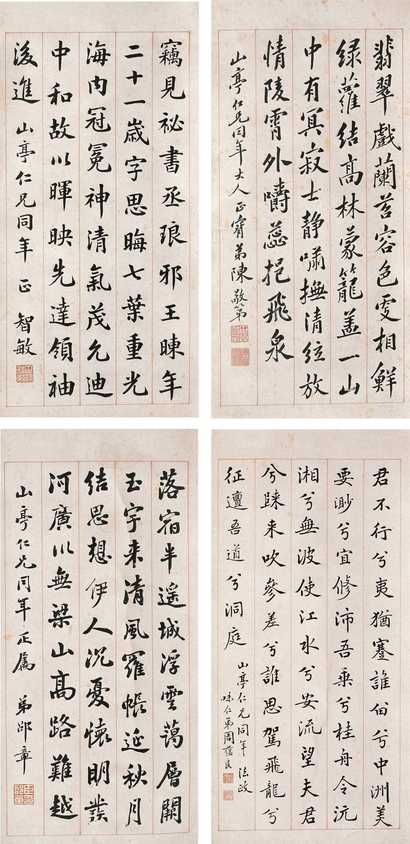 翡翠戲蘭苕容色更相鮮
綠蘿結高林蒙籠蓋一山
中有冥寂士靜嘯撫清絃放
情陵霄外嚼蕊挹飛泉
山亭仁兄同年大人正 弟陳敬第
竊見祕書丞琅邪王暕年
二十一歲字思晦七葉重光
海內冠冕神清氣茂允迪
中和故以暉映先達領袖
後進 山亭仁兄同年正 智敏
君不行兮夷猶蹇誰留兮中洲美
要渺兮宜修沛吾乘兮桂舟令沅
湘兮無波使江水兮安流望夫君
兮歸來吹參差兮誰思駕飛龍兮
征邅吾道兮洞庭
山亭仁兄同年法政
味仁弟周蘊良
落宿半遙城浮雲藹層闕
玉宇來清風羅帳延秋月
結思想伊人沉憂懷明發
河廣川無梁山高路難越
山亭仁兄同年正屬 弟邵章